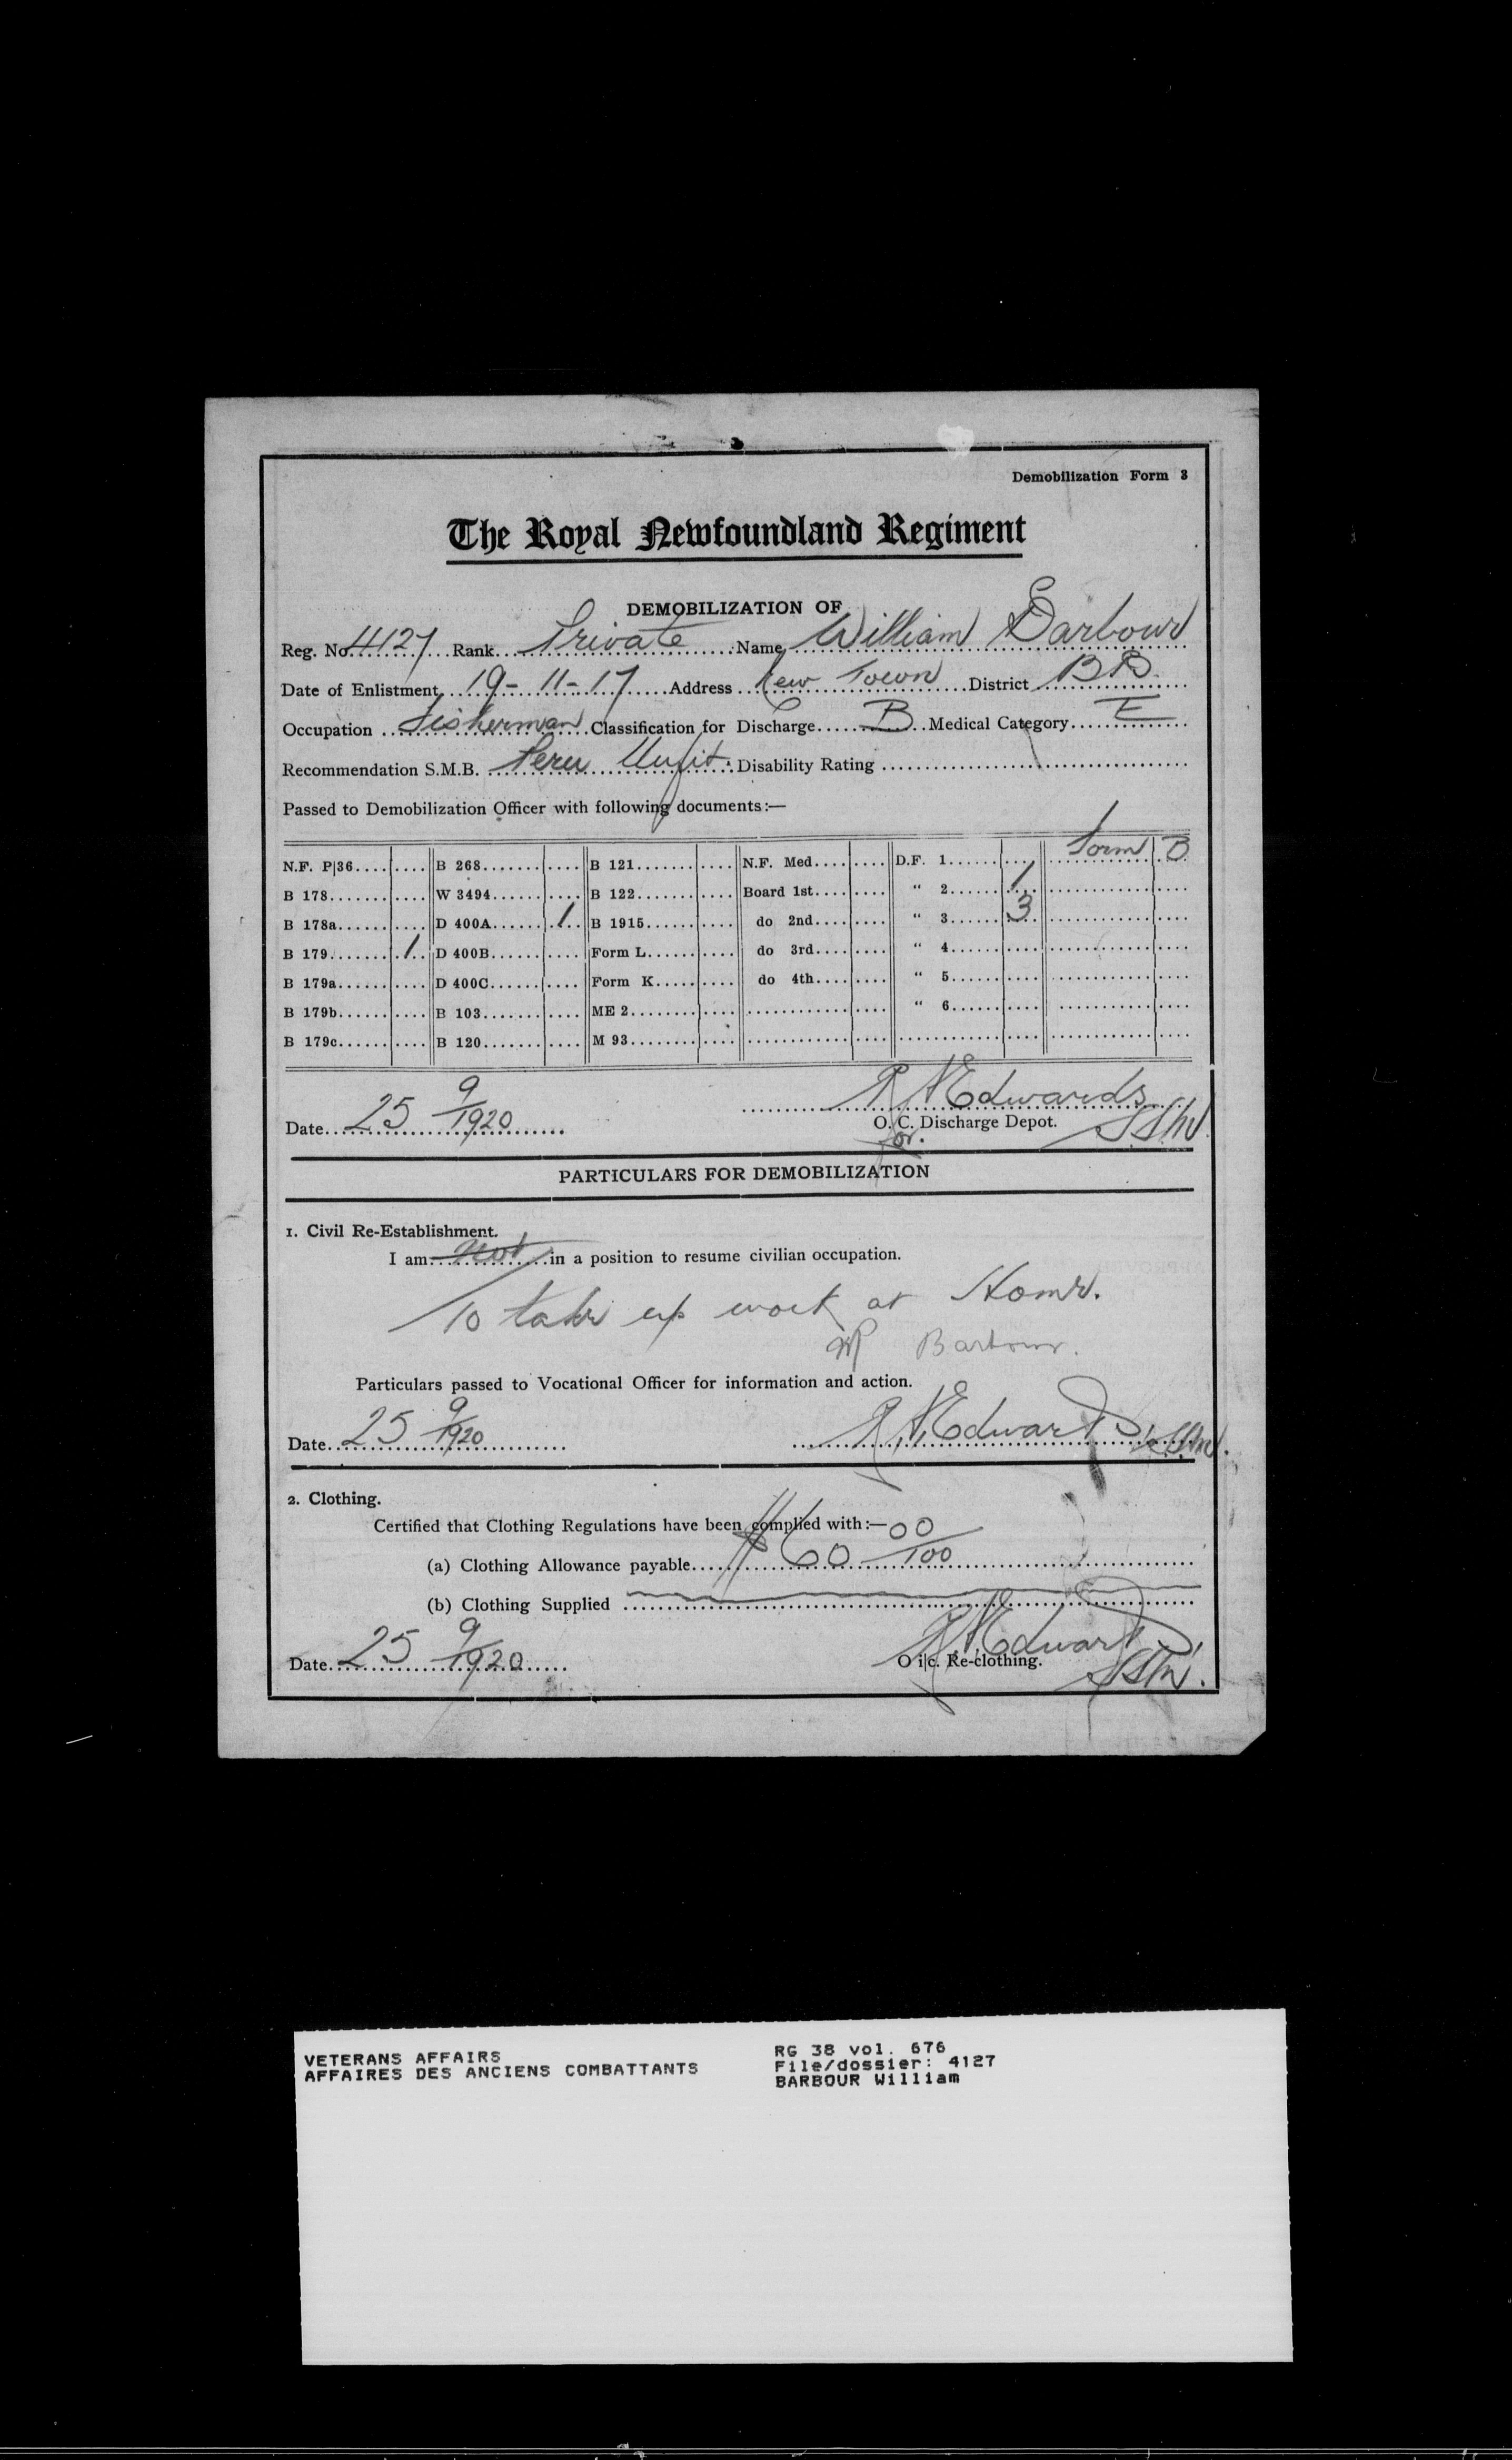 Demobilization Form 3
The Royal Newfoundland Regiment
DEMOBILIZATION OF
Reg. No. 4127 Rank Private Name William Barbour
Date of Enlistment 19-11-17 Address New Town District B B.
Occupation Fisherman Classification for Discharge B Medical Category E
Recommendation S.M.B. Perm Unfit. Disability Rating
Passed to Demobilization Officer with following documents:—
N.F. P|36 B 268 B 121 N.F. Med. D.F. 1 Form B
B 178 W 3494 B 122 Board 1st " 2 1
B 178a D 400A 1 B 1915 do 2nd " 3 3
B 179 1 D 400B Form L do 3rd " 4
B 179a D 400C Form K do 4th " 5
B 179b B 103 ME 2 " 6
B 179c B 120 M 93
Date 25 9/1920 R H Edwards
for O. C. Discharge Depot.
PARTICULARS FOR DEMOBILIZATION
1. Civil Re-Establishment.
I am not in a position to resume civilian occupation.
To take up work at Home.
W Barbour.
Particulars passed to Vocational Officer for information and action.
Date 25 9/1920 R H Edwards
2. Clothing.
Certified that Clothing Regulations have been complied with:—
(a) Clothing Allowance payable $60 00/100
(b) Clothing Supplied
Date 25 9/1920 R H Edwards
O i|c. Re-clothing.
VETERANS AFFAIRS
AFFAIRES DES ANCIENS COMBATTANTS
RG 38 vol. 676
File/dossier: 4127
BARBOUR William